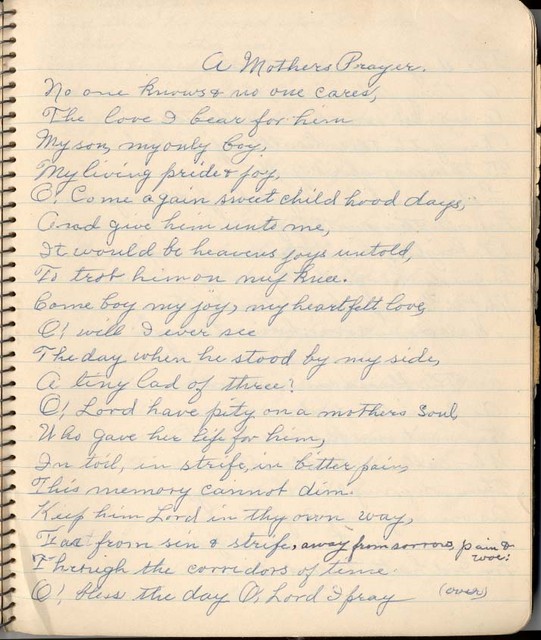 A Mothers Prayer.
No one knows & no one cares,
The love I bear for him
My son, my only boy,
My living pride & joy,
O! Come again sweet child hood days,
And give him unto me,
It would be heavens joys untold,
To trot him on my knee.
Come boy my joy, my heartfelt love,
O! will I ever see
The day when he stood by my side,
A tiny lad of three?
O! Lord have pity on a mothers soul,
Who gave her life for him,
In toil, in strife, in bitter pain,
This memory cannot dim.
Keep him Lord in thy own way,
Far from sin & strife, away from sorrow, pain &
woe.
Through the corridors of time.
O! bless the day O, Lord I pray (over)